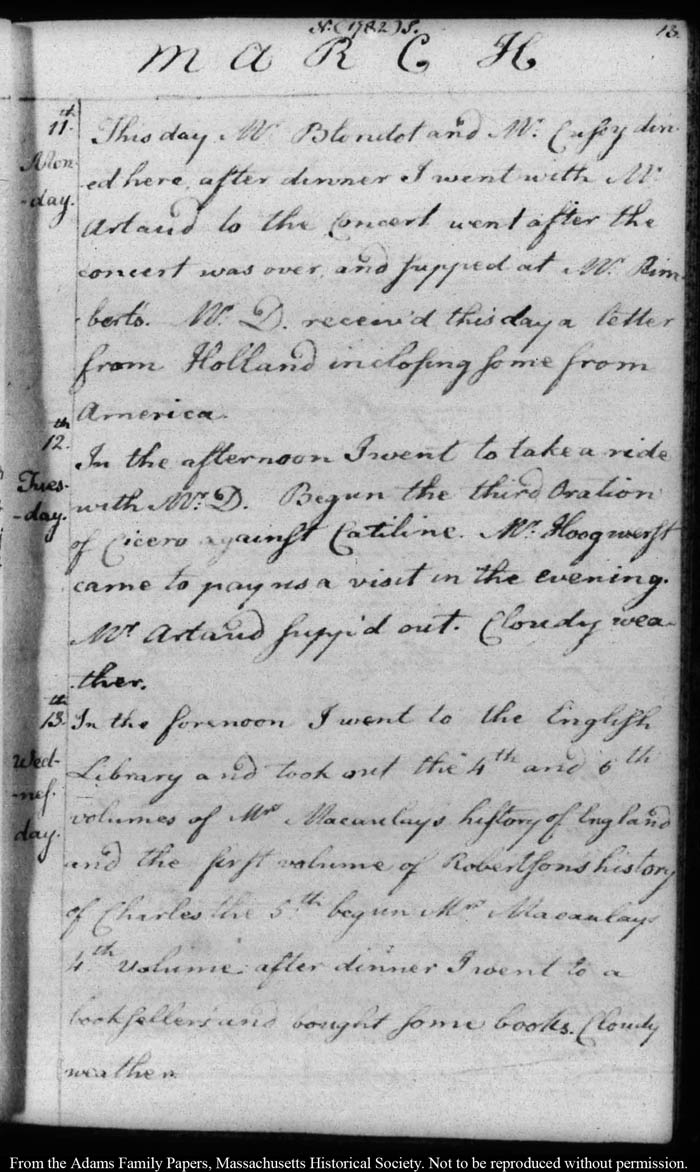 N. (1782) S.
13.
MARCH
11th
Monday.
This day Mr. Blondot and Mr. Cussy din-
ed here, after dinner I went with Mr.
Artaud to the Concert went after the
concert was over, and supped at Mr. Rim-
-berts. Mr. D. receiv'd this day a letter
from Holland inclosing some from
America.
12.th
Tues-
-day.
In the afternoon I went to take a ride
with Mr. D. Begun the third Oration
of Cicero against Catiline. Mr. Hoogwerft
came to pay us a visit in the evening.
Mr. Artaud supp'd out. Cloudy wea-
ther.
13.th
Wed-
-nes-
day.
In the forenoon I went to the English
Library and took out the 4th and 6th
volumes of Mrs. Macaulays history of England
and the first volume of Robertsons history
of Charles the 5.th begun Mrs. Macaulays
4.th volume. after dinner I went to a
booksellers and bought some books. Cloudy
weather.
From the Adams Family Papers, Massachusetts Historical Society. Not to be reproduced without permission.